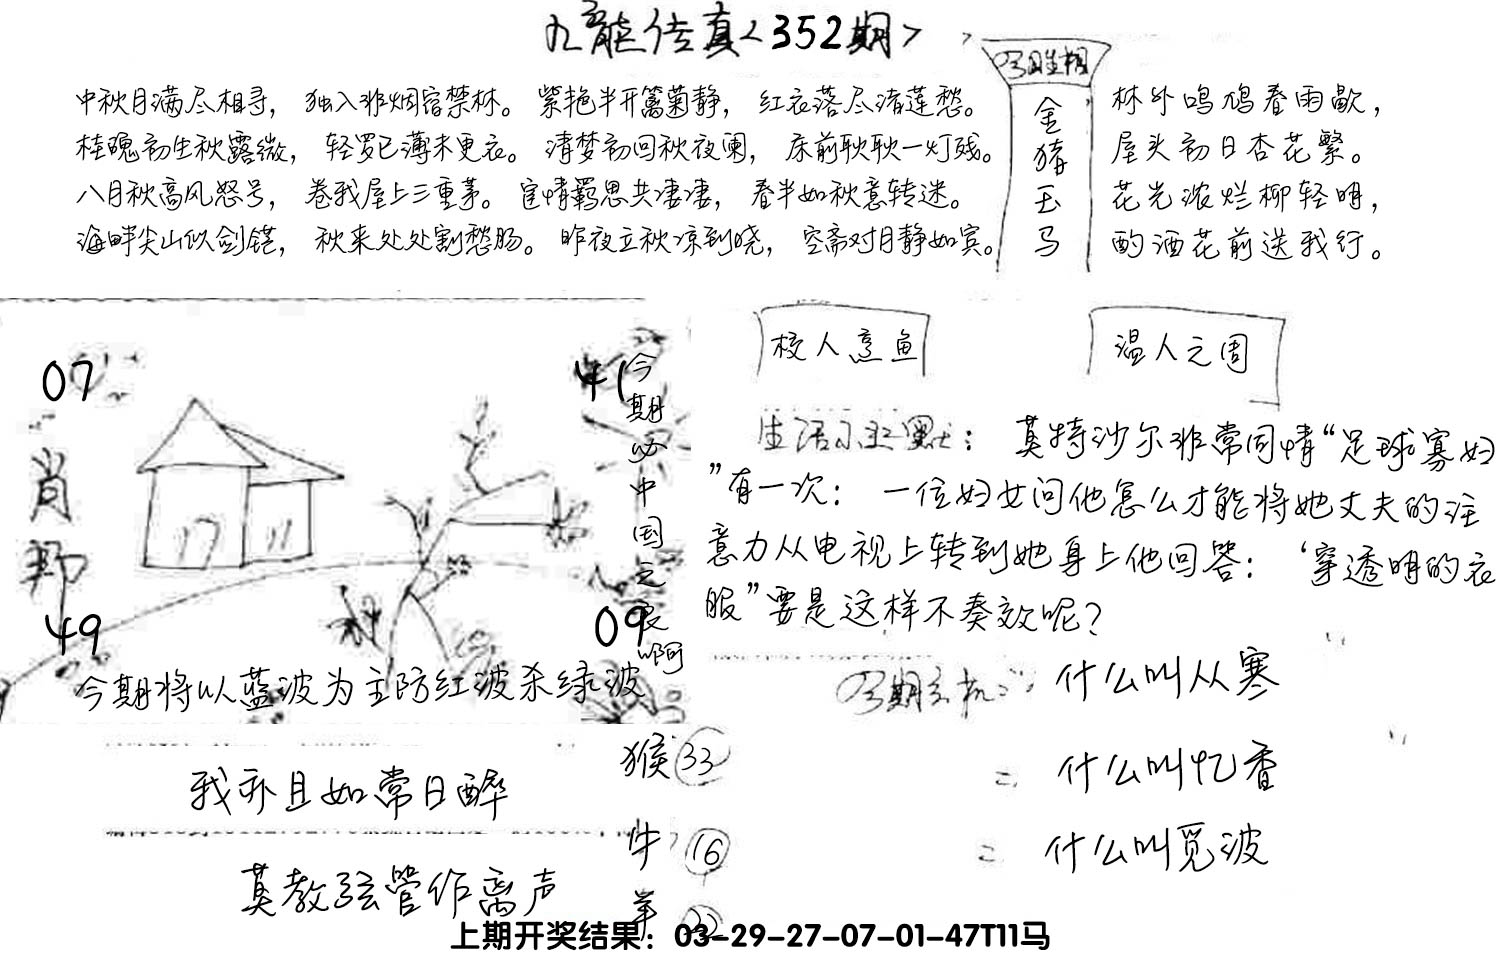 九龙传真<352期>
中秋月满尽相寻，独入非烟宿禁林。紫艳半开篱菊静，红衣落尽渚莲愁。
桂魄初生秋露微，轻罗已薄未更衣。清梦初回秋夜阑，床前耿耿一灯残。
八月秋高风怒号，卷我屋上三重茅。宦情羁思共凄凄，春半如秋意转迷。
海畔尖山似剑铓，秋来处处割愁肠。昨夜立秋凉到晓，空斋对月静如宾。
今期生相
金猪玉马
林外鸣鸠春雨歇，
屋头初日杏花繁。
花光浓烂柳轻明，
酌酒花前送我行。
07
41
肖
49
09
今期必中国之
啊
今期将以蓝波为主防红波杀绿波
校人烹鱼
温人之周
生活小幽默：莫特沙尔非常同情“足球寡妇
”有一次：一位妇女问他怎么才能将她丈夫的注
意力从电视上转到她身上他回答：‘穿透明的衣
服”要是这样不奏效呢？
今期玄机：什么叫从寒
= 什么叫忆香
= 什么叫觅波
我亦且如常日醉
莫教弦管作离声
猴 33
牛 16
羊 22
上期开奖结果：03-29-27-07-01-47T11马